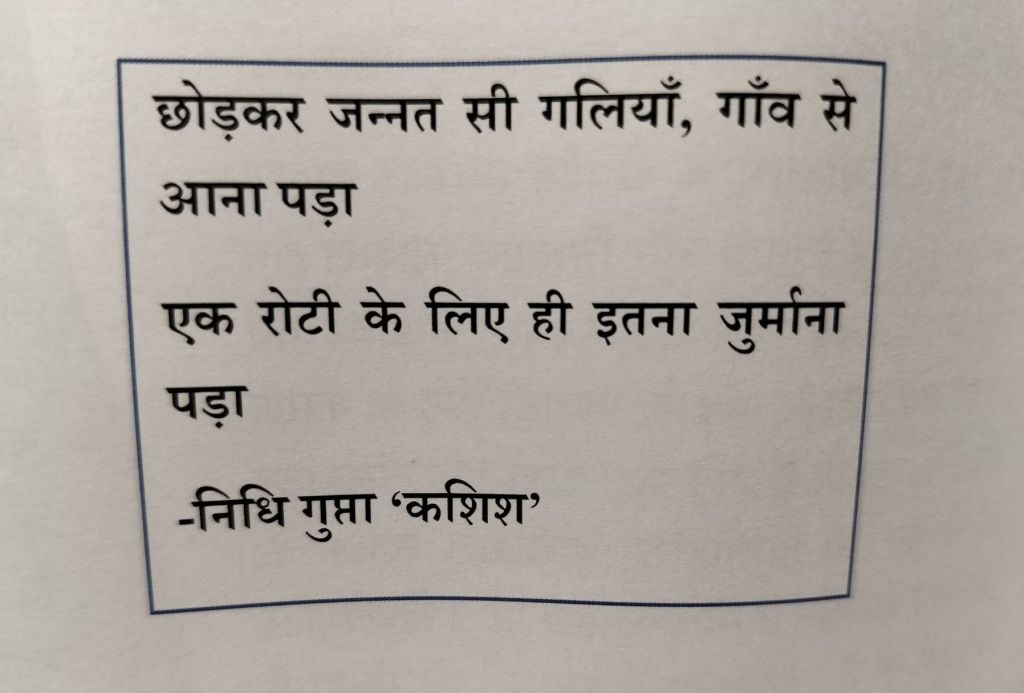 छोड़कर जन्नत सी गलियाँ, गाँव से
आना पड़ा
एक रोटी के लिए ही इतना जुर्माना
पड़ा
-निधि गुप्ता ‘कशिश’